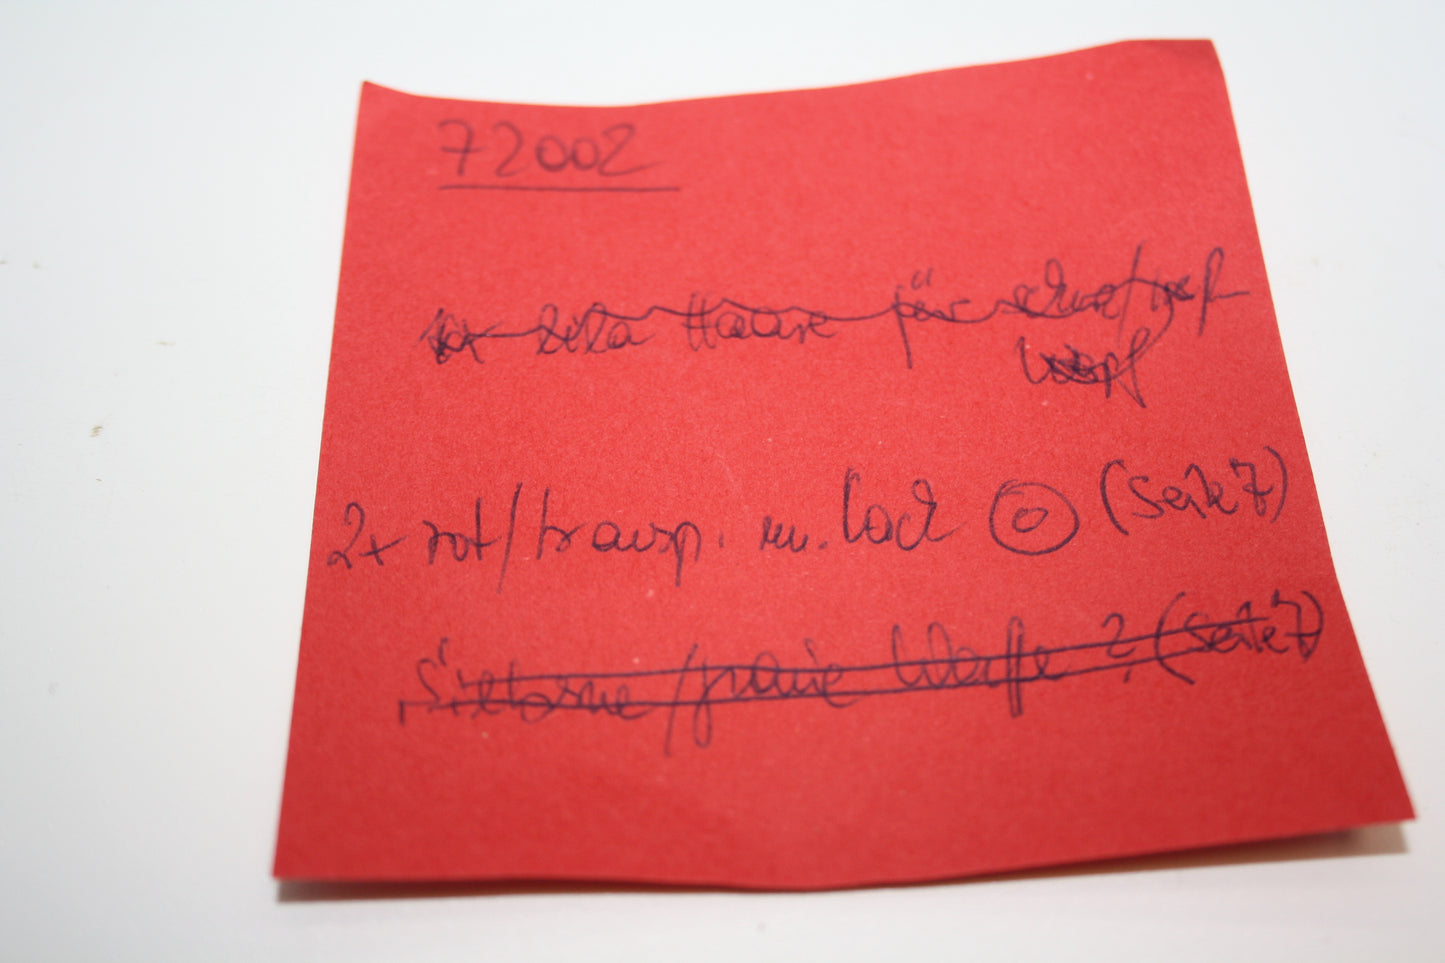 72002
1x lila Haare für
Kopf
2x rot/transp. m. Loch (Seite 7)
Silberne/graue Waffe? (Seite 7)